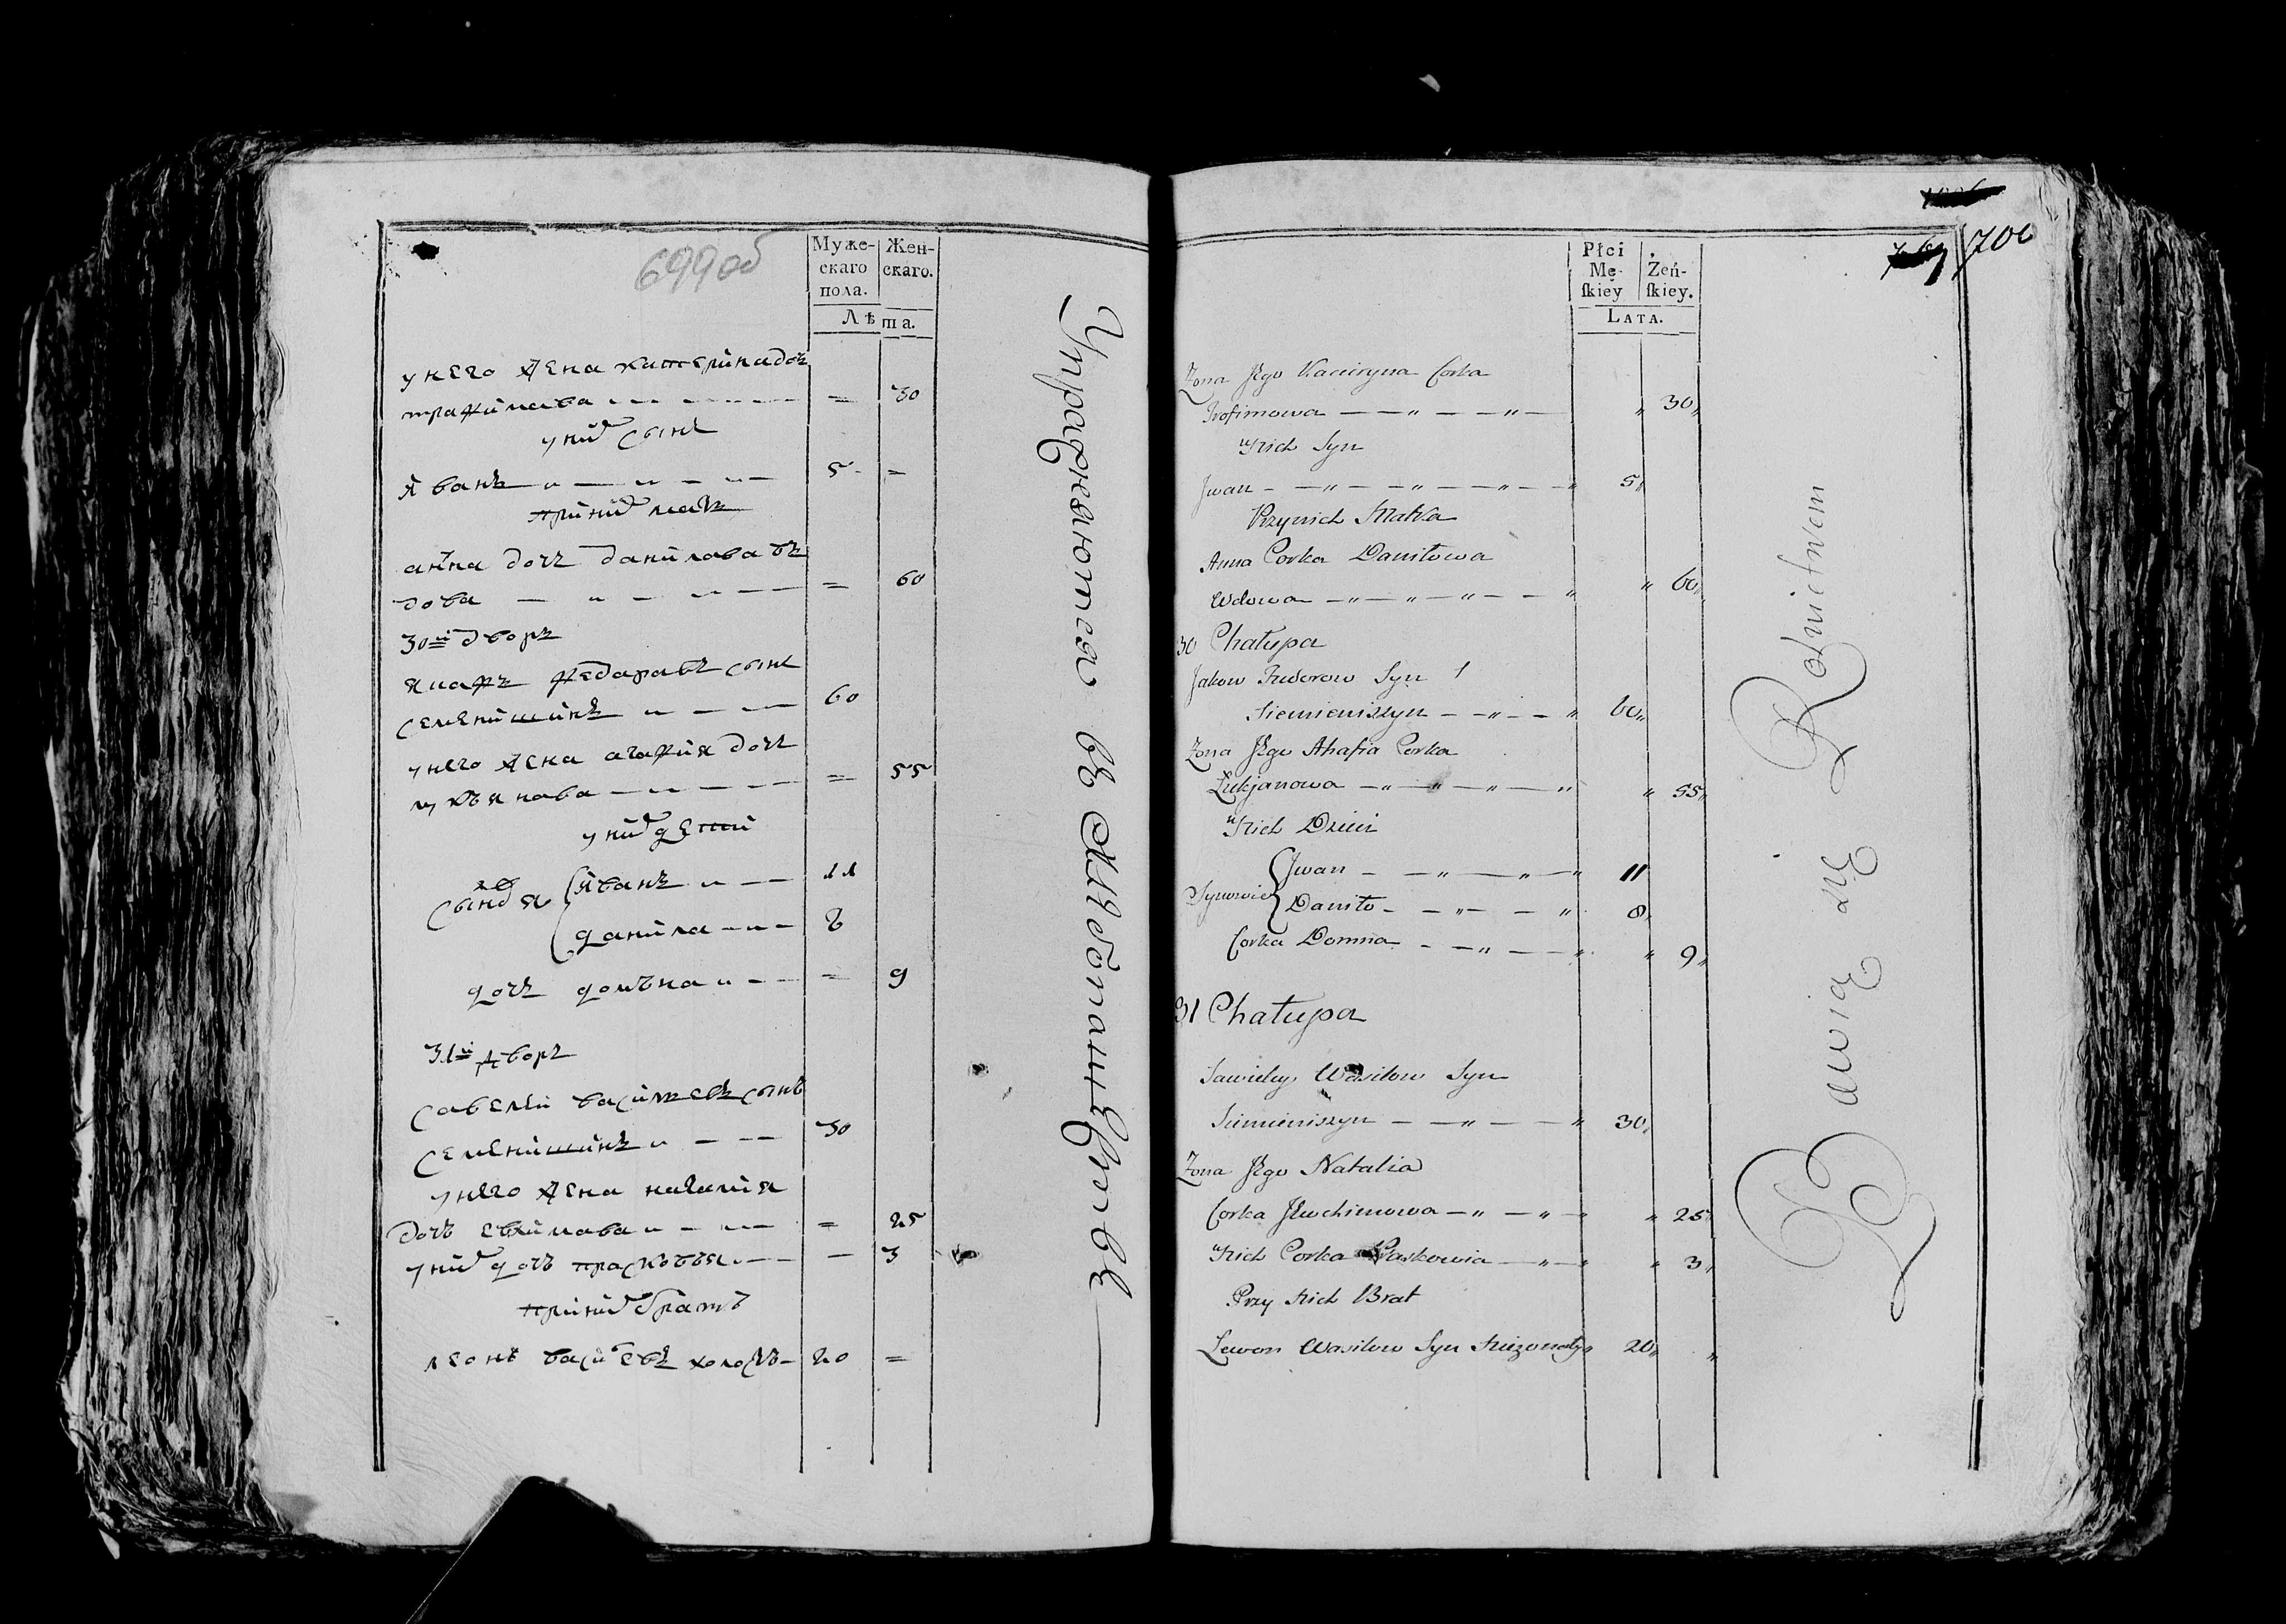 699об
Муже-
скаго
пола.
Жен-
скаго.
Лѣта.
у него жена катерина доч
трафимова 30
у них сынъ
иванъ 5
при них мать
анна дочь данилова въ
дова 60
30й дворъ
якафъ федаравъ сынъ
семенишинъ 60
у него жена агафия дочь
лукъянава 55
у них дети
сыновя иванъ 11
данила 8
дочь домъна 9
31й дворъ
савелей василевъ сынъ
семенишинъ 30
у него жена наталия
дочь ефимава 25
у них дочь прасковъя 3
при них братъ
леонъ василевъ холостъ 20
Упражняются въ хлѣбопашествѣ
700
Płci
Mę-
ſkiey
Żeń-
ſkiey.
LATA.
Żona Jego Kacieryna Corka
Trofimowa 30
U Nich Syn
Jwan 5
Przy nich Matka
Anna Corka Daniłowa
Wdowa 60
30 Chałupa
Jakow Fiedorow Syn
Siemieniszyn 60
Żona Jego Ahafia Corka
Łukjanowa 55
U Nich Dzieci
Synowie Jwan 11
Daniło 8
Corka Domna 9
31 Chałupa
Sawieley Wasilow Syn
Siemieniszyn 30
Żona Jego Natalia
Corka Jewchimowa 25
U Nich Corka Paskowia 3
Przy Nich Brat
Lewon Wasilow Syn Nieżonaty 20
Bawią się Rolnictwem